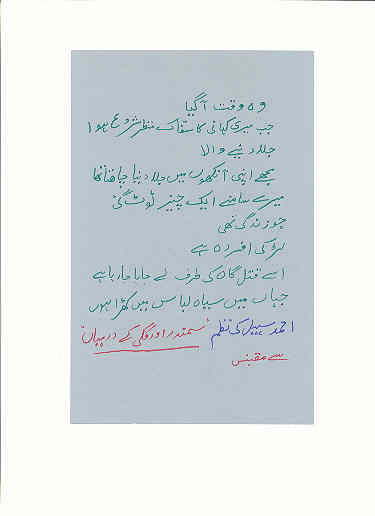 وہ وقت آگیا
جب میری کہانی کا سفاک منظر شروع ہوا
جلاد نے والا
مجھے اپنی آنکھوں میں جلاد بننا جانتا تھا
میرے سامنے ایک چیز ٹوٹ گئی
جو زندگی تھی
لڑکی افسردہ ہے
اسے قتل گاہ کی طرف لے جایا جا رہا ہے
جہاں میں سیاہ لباس میں کھڑا ہوں
احمد سہیل کی نظم "سمندر اور وگی کے درمیاں"
سے مقتبس